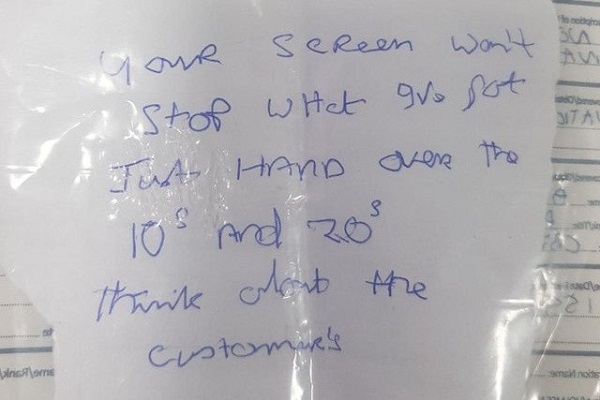 your SCREEN won't
STOP WHat Ive Got
Just HAND over the
10s And 20s
think about the
customer's